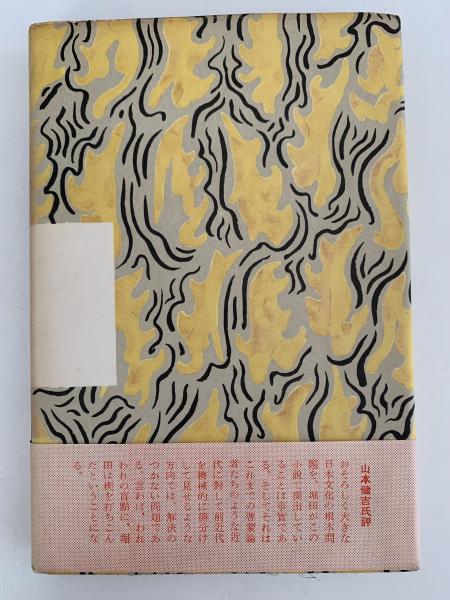 山本健吉氏評
おそろしく大きな
日本文化の根本問
題を、堀田がこの
小説で提出してい
ることは事實であ
る。そしてそれは
これまでの啓蒙論
者たちのような近
代に對して前近代
を機械的に腑分け
して見せるような
方向では、解決の
つかない問題であ
る。言わば、われ
われの盲點に、堀
田は楔を打ちこん
だということにな
る。